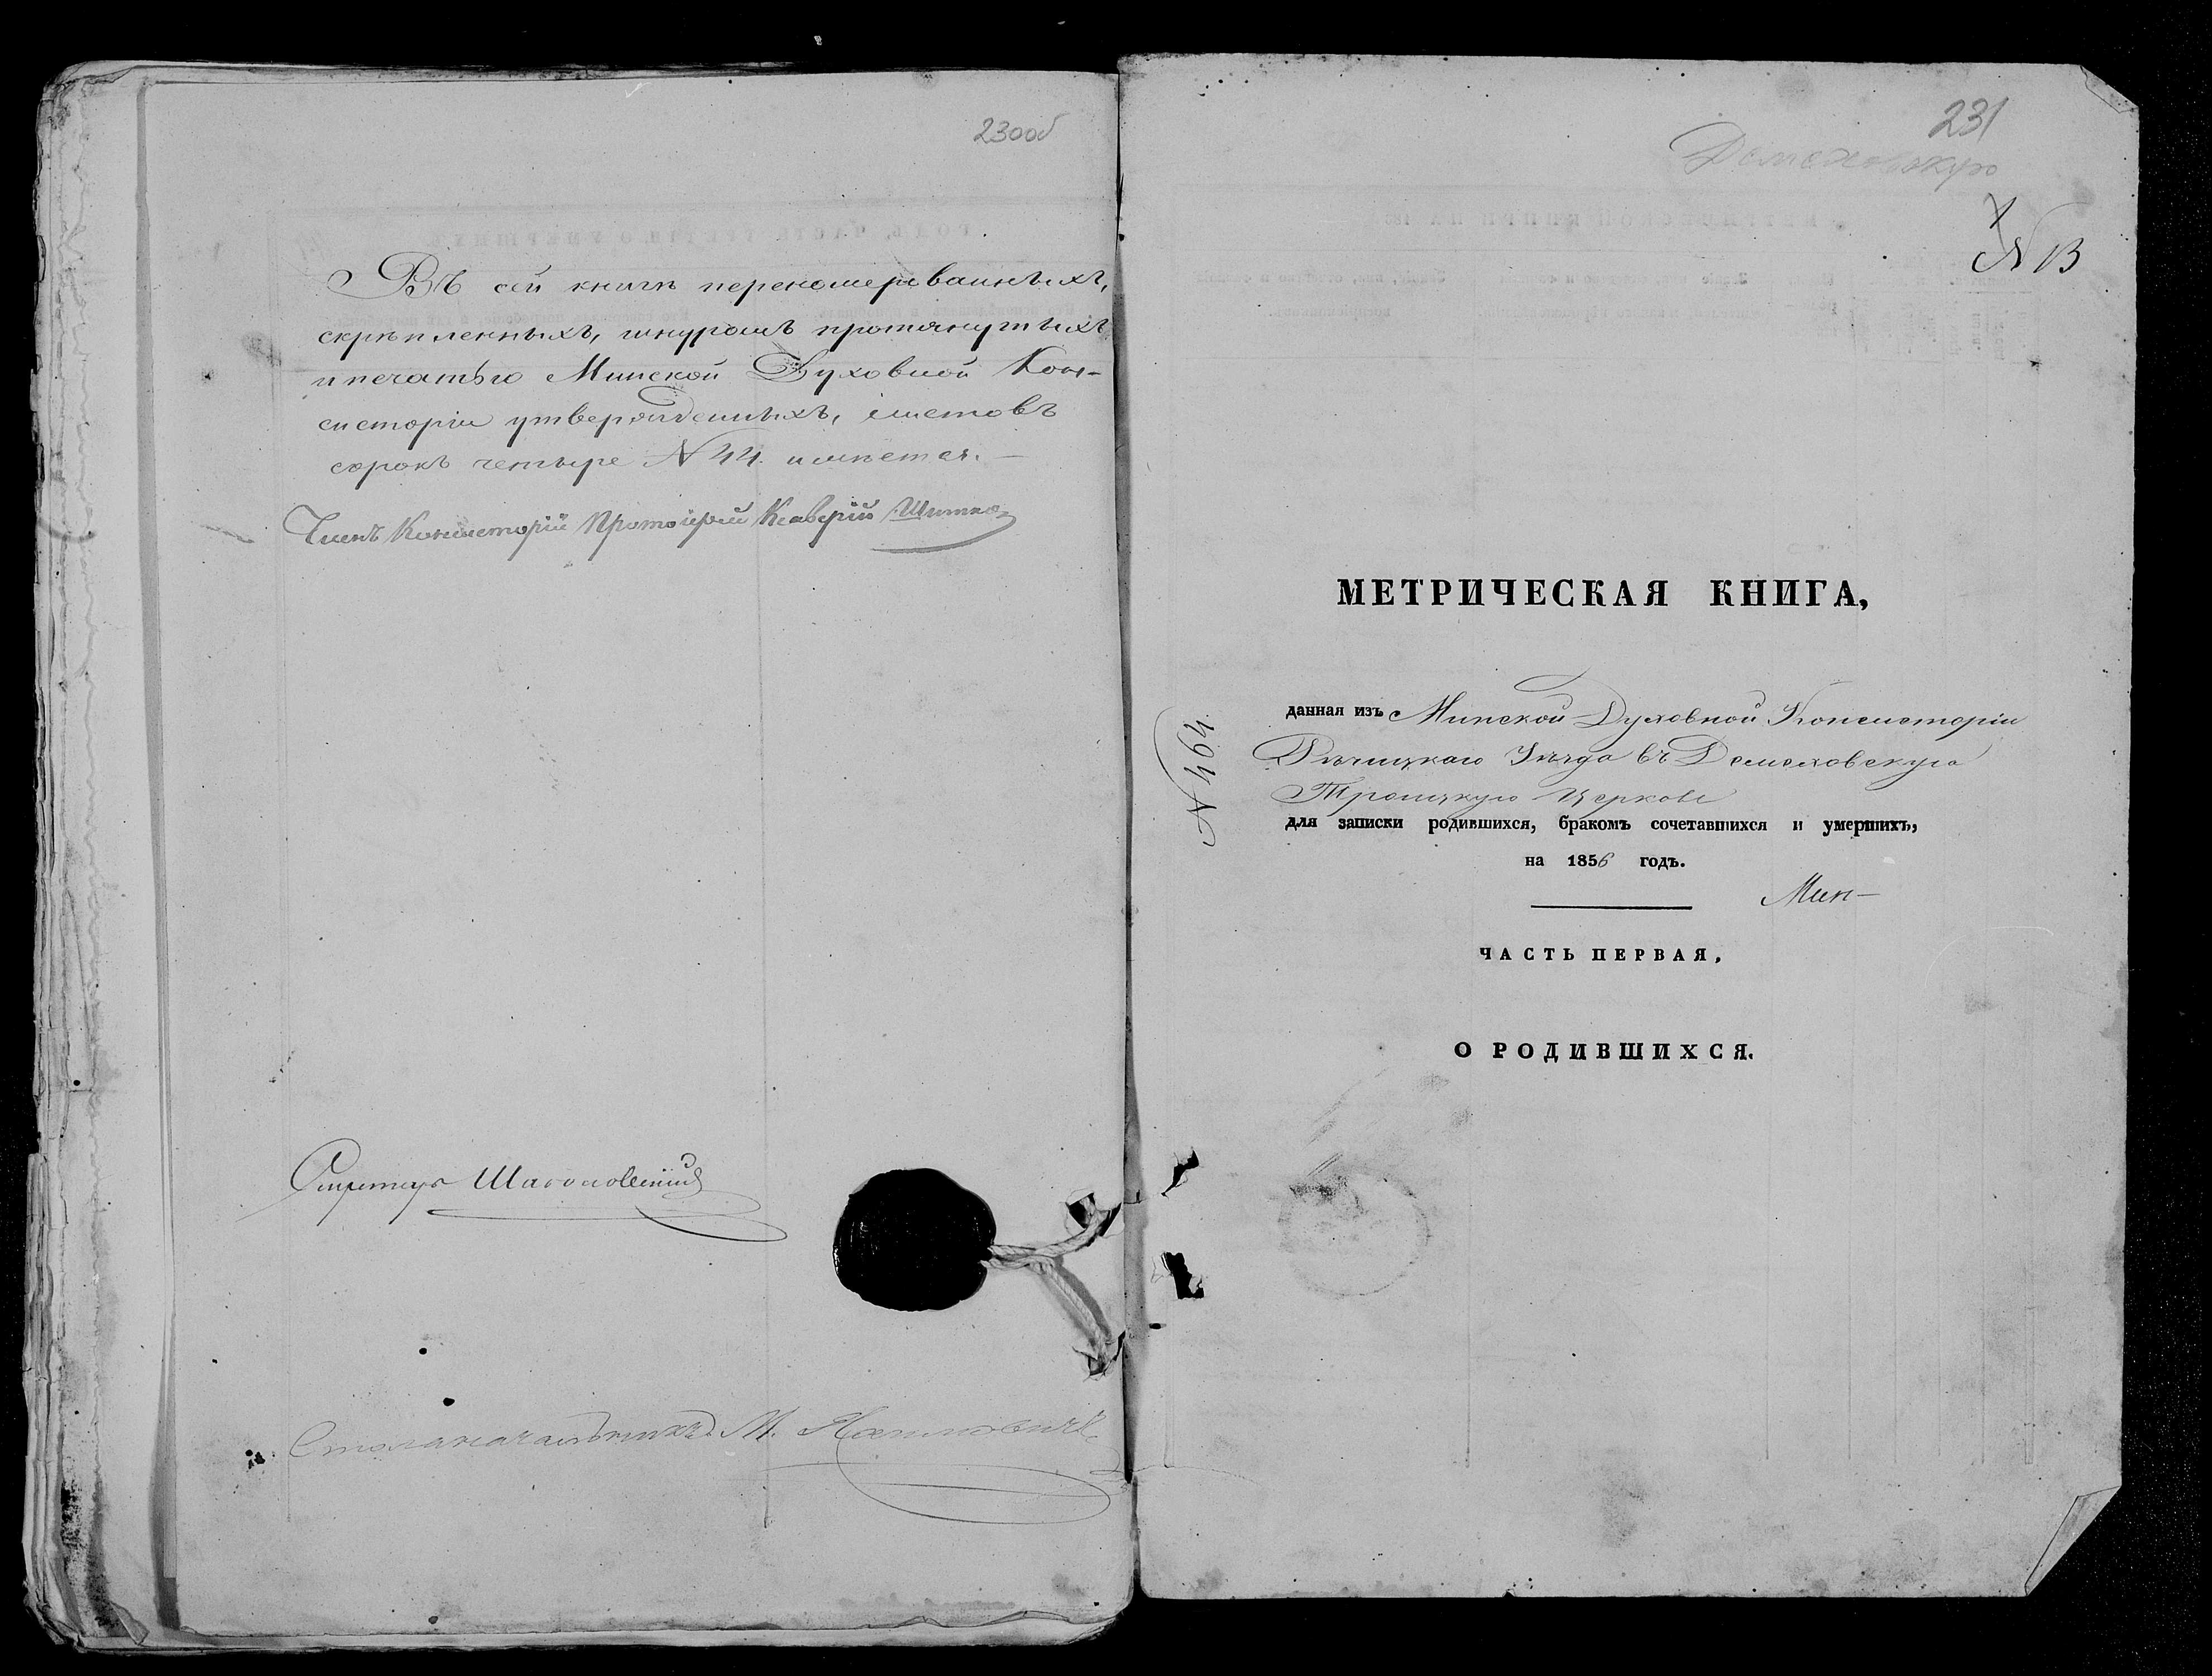 230об
Въ сей книгѣ перенумерованныхъ,
скрѣпленныхъ, шнуромъ протянутыхъ
и печатью Минской Духовной Кон-
систоріи утвержденныхъ, листовъ
сорокъ четыре N 44. имѣется.—
Членъ Консисторіи Протоіерей Ксаверій Шитко
Секретарь
Столоначальникъ М.
231
Демеховскую
N 13
МЕТРИЧЕСКАЯ КНИГА,
данная изъ Минской Духовной Консисторіи
Рѣчицкаго Уѣзда въ Демеховскую
Троицкую Церковь
для записки родившихся, бракомъ сочетавшихся и умершихъ,
на 1856 годъ.
Мин-
ЧАСТЬ ПЕРВАЯ,
О РОДИВШИХСЯ.
N 494